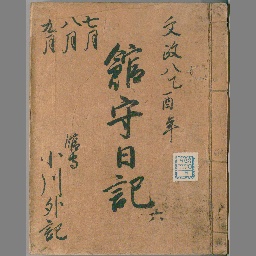 文政八乙酉年
館守日記
六
七月
八月
九月
館守
小川外記